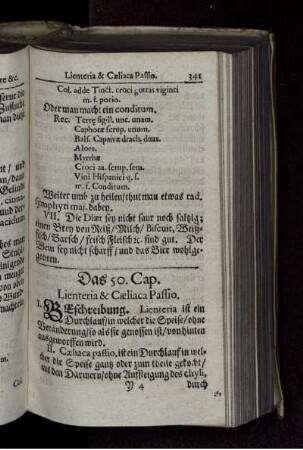 Lienteria & Cæliaca Passio. 341
Col. adde Tinct. croci guttis viginti
m. f. potio.
Oder man macht ein conditum.
Rec. Terrę sigill. unc. unam.
Caphoræ scrup. unum.
Bals. Capaivæ drach. duas.
Aloes.
Myrrhæ
Croci aa. scrup. sem.
Vini Hispanici q. s.
w. f. Conditum.
Weiter umb zu heilen/thut man etwas rad.
symphyti maj. dabey.
VII. Die Diæt sey nicht saur noch saltzig:
einen Brey von Reiß/Milch/Biscuit, Weiß-
fisch/Barsch/frisch Fleisch ꝛc. sind gut. Der
Wein sey nicht scharff/und das Bier wohlge-
gohren.
Das 50. Cap.
Lienteria & Cæliaca Passio.
I. BEschreibung. Lienteria ist ein
Durchlauf/in welcher die Speise/ohne
Veränderung/so als sie genossen ist/von hinten
ausgeworffen wird.
II. Cæliaca passio, ist ein Durchlauf/in wel-
cher die Speise gantz oder zum theile gekocht/
aus den Därmern/ohne Aufsteigung des chyli,
Y 4 durch